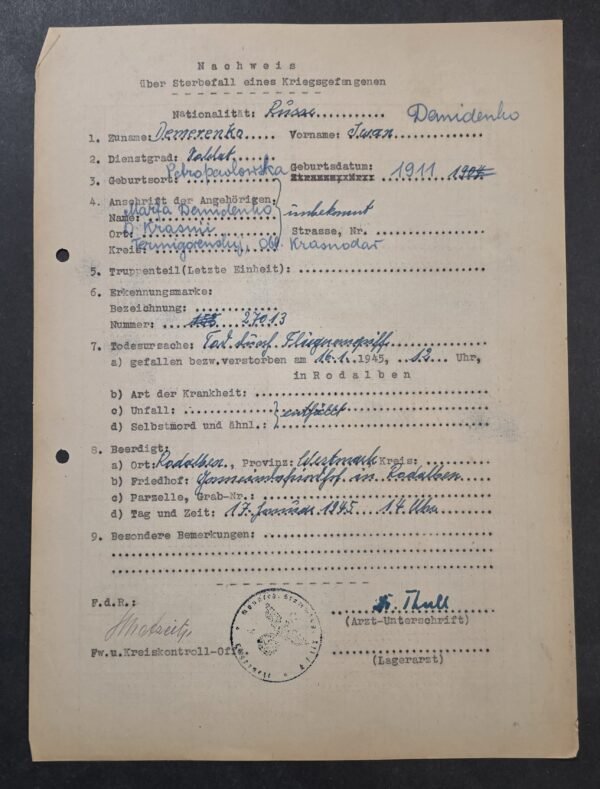 Nachweis
über Sterbefall eines Kriegsgefangenen
Nationalität: Russe
Demidenko
1. Zuname: Demerenko Vorname: Iwan
2. Dienstgrad: Soldat
3. Geburtsort: Petropawlowska Geburtsdatum: 1911 1904
4. Anschrift der Angehörigen:
Name: Marfa Demidenko unbekannt
Ort: D. Krasnii Strasse, Nr.
Kreis: Obl. Krasnodar
5. Truppenteil (Letzte Einheit):
6. Erkennungsmarke:
Bezeichnung:
Nummer: 27013
7. Todesursache: Tod durch Fliegerangriff
a) gefallen bezw. verstorben am 16.1. 1945, 12 Uhr,
in Rodalben
b) Art der Krankheit:
c) Unfall: entfällt
d) Selbstmord und ähnl.:
8. Beerdigt:
a) Ort: Rodalben, Provinz: Westmark Kreis:
b) Friedhof: Gemeindefriedhof in Rodalben
c) Parzelle, Grab-Nr.:
d) Tag und Zeit: 17. Januar 1945 14 Uhr
9. Besondere Bemerkungen:
F.d.R.:
Dr. Thull
(Arzt-Unterschrift)
Fw.u.Kreiskontroll-Off
(Lagerarzt)